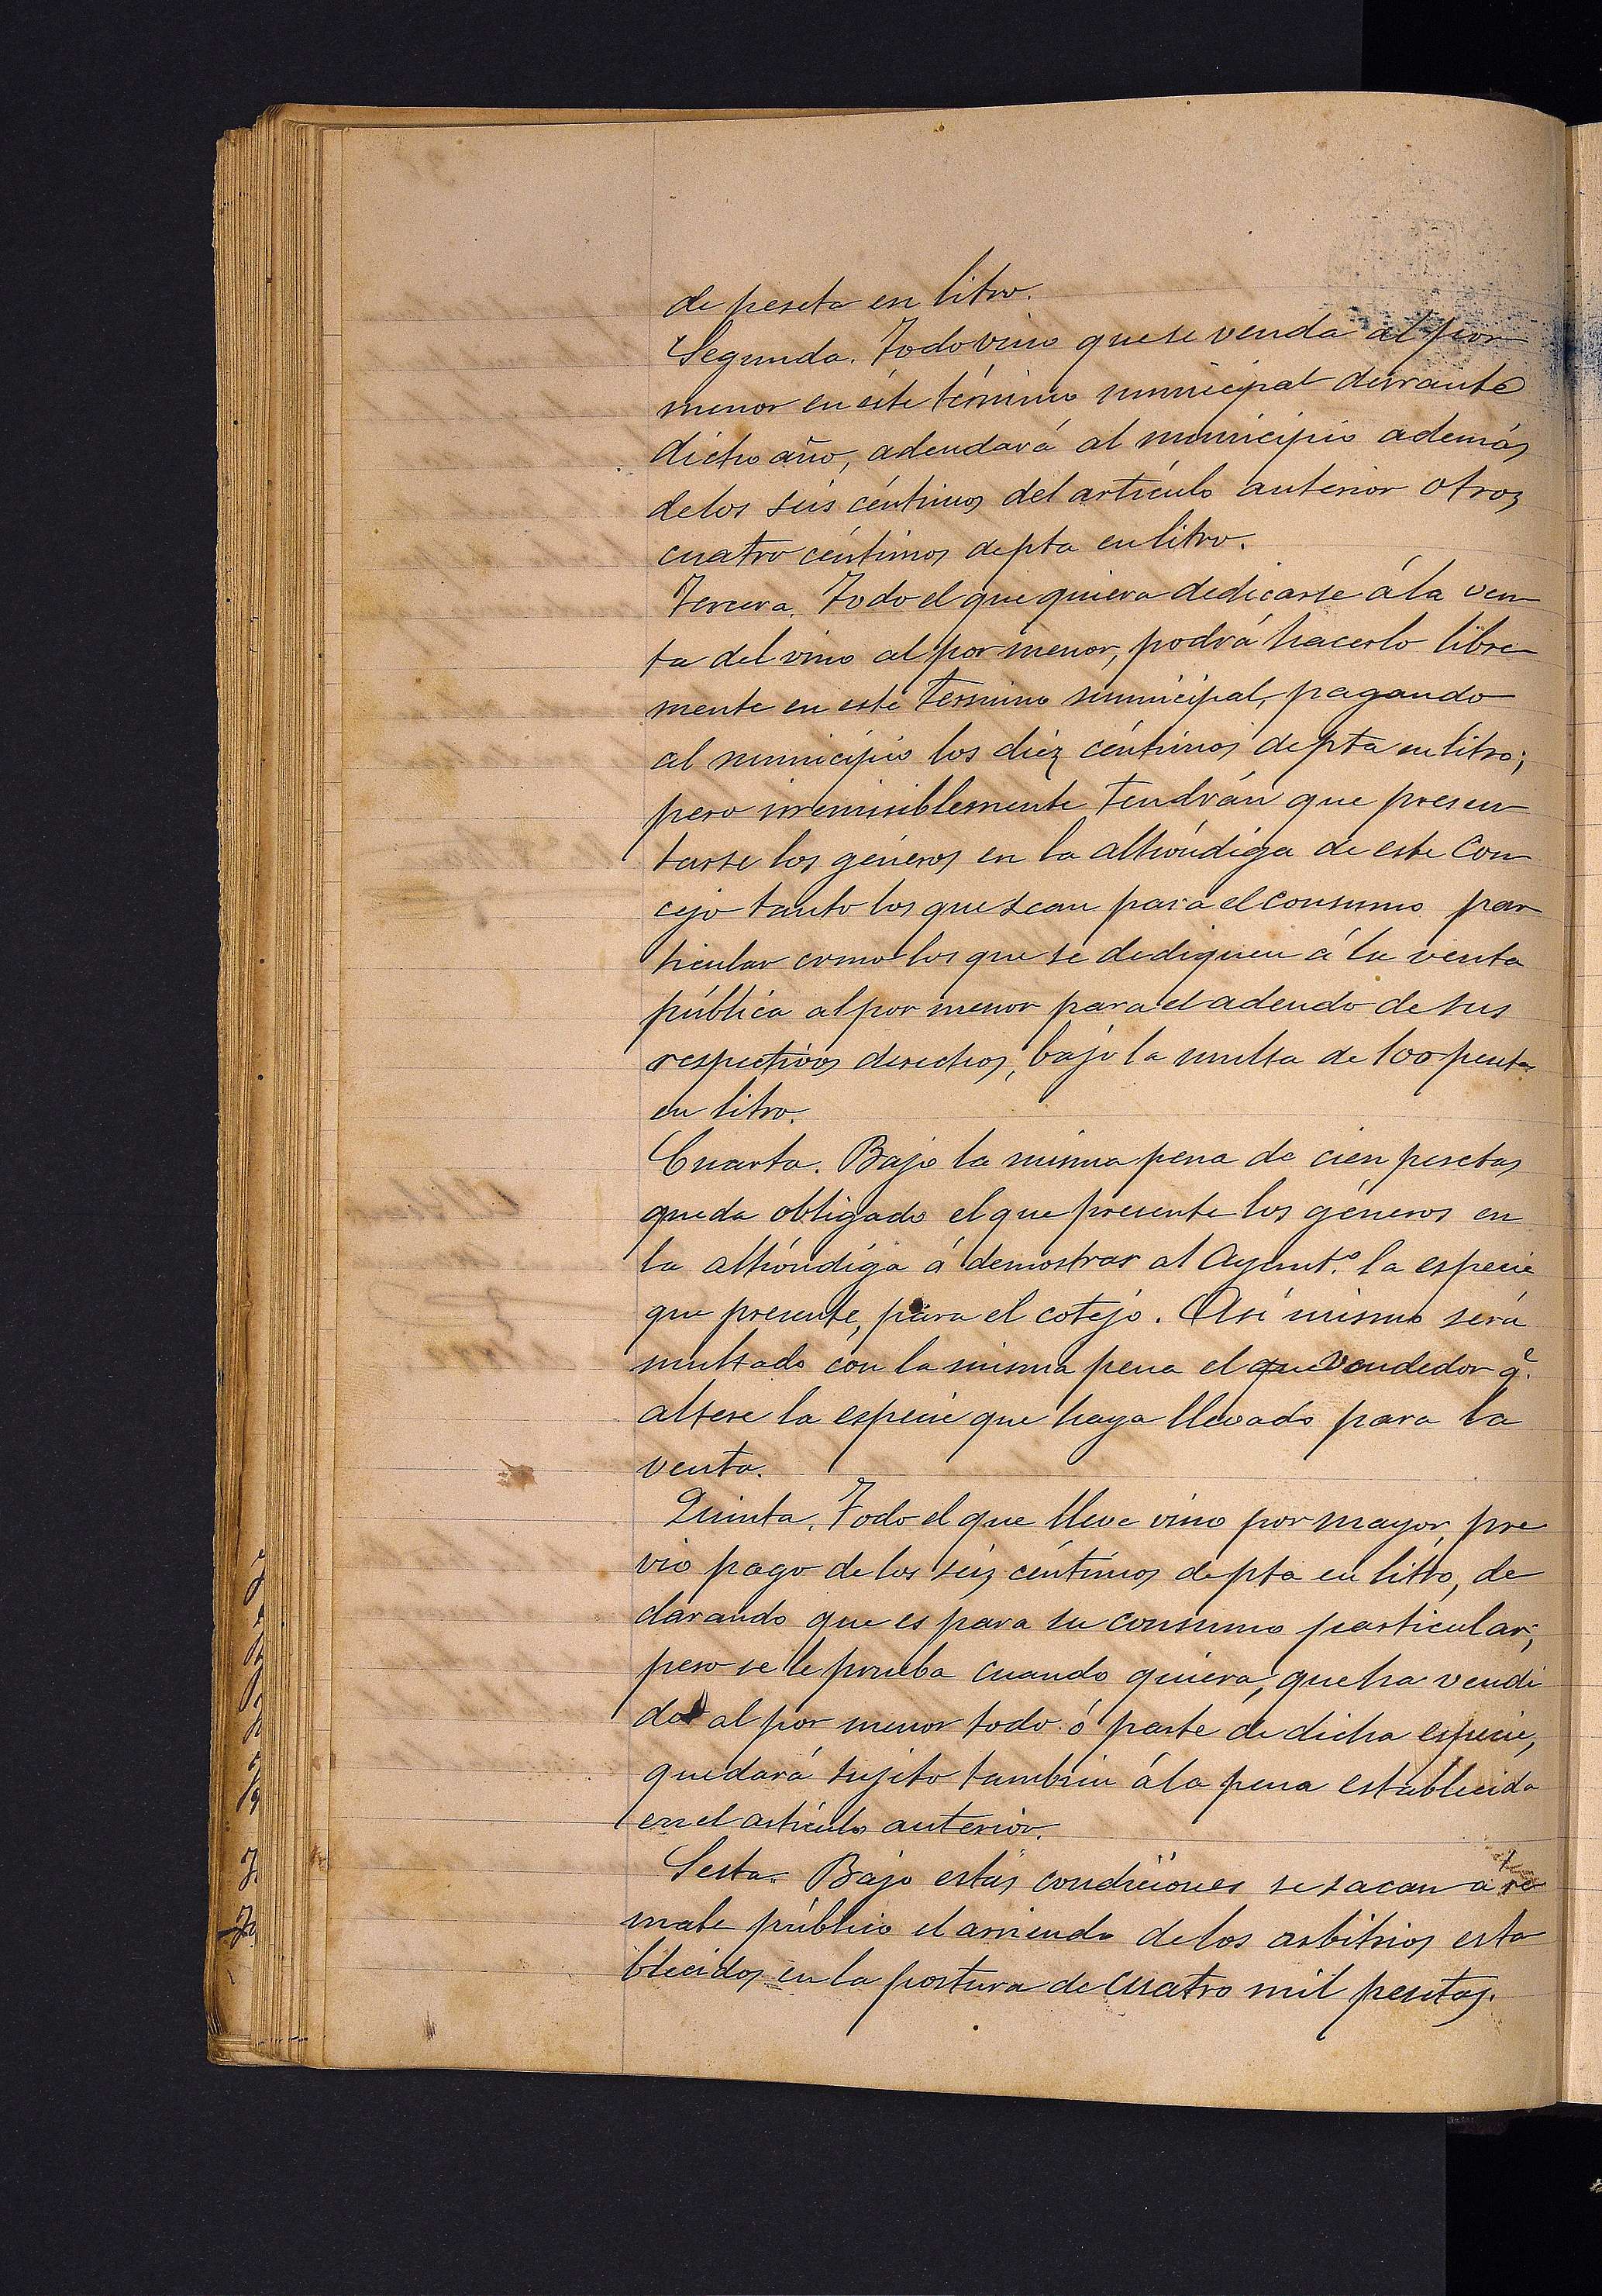 de peseta en litro.
Segunda. Todo vino que se venda al por
menor en éste término municipal durante
dicho año, adeudará al municipio además
de los séis céntimos del artículo anterior otros
cuatro céntimos de pta en litro.
Tercera. Todo el que quiera dedicarse á la ven
ta del vino al por menor, podrá hacerlo libre
mente en este termino municipal, pagando
al municipio los diéz céntimos de pta en litro;
pero irremisiblemente tendrán que presen
tarse los géneros en la alhóndiga de este Con
cejo tanto los que sean para el consumo par
ticular como los que se dediquen á la venta
pública al por menor para el adeudo de sus
respectivos derechos, bajo la multa de 100 pesetas
en litro.
Cuarta. Bajo la misma pena de cien pesetas
queda obligado el que presente los géneros en
la alhóndiga á demostrar al Ayunt.º la especie
que presente, para el cotejo. Asi mismo será
multado con la misma pena el que vendedor q.e
altere la especie que haya llevado para la
venta.
Quinta. Todo el que lleve vino por mayor, pre
vio pago de los séis céntimos de pta en litro, de
clarando que es para su consumo particular,
pero se le prueba cuando quiera, que ha vendi
do al por menor todo ó parte de dicha especie,
quedará sujeto tambien á la pena establecida
en el artículo anterior.
Sesta. Bajo estas condiciones se sacan a re
mate público el arriendo de los arbitrios esta
blecidos en la postura de cuatro mil pesetas.